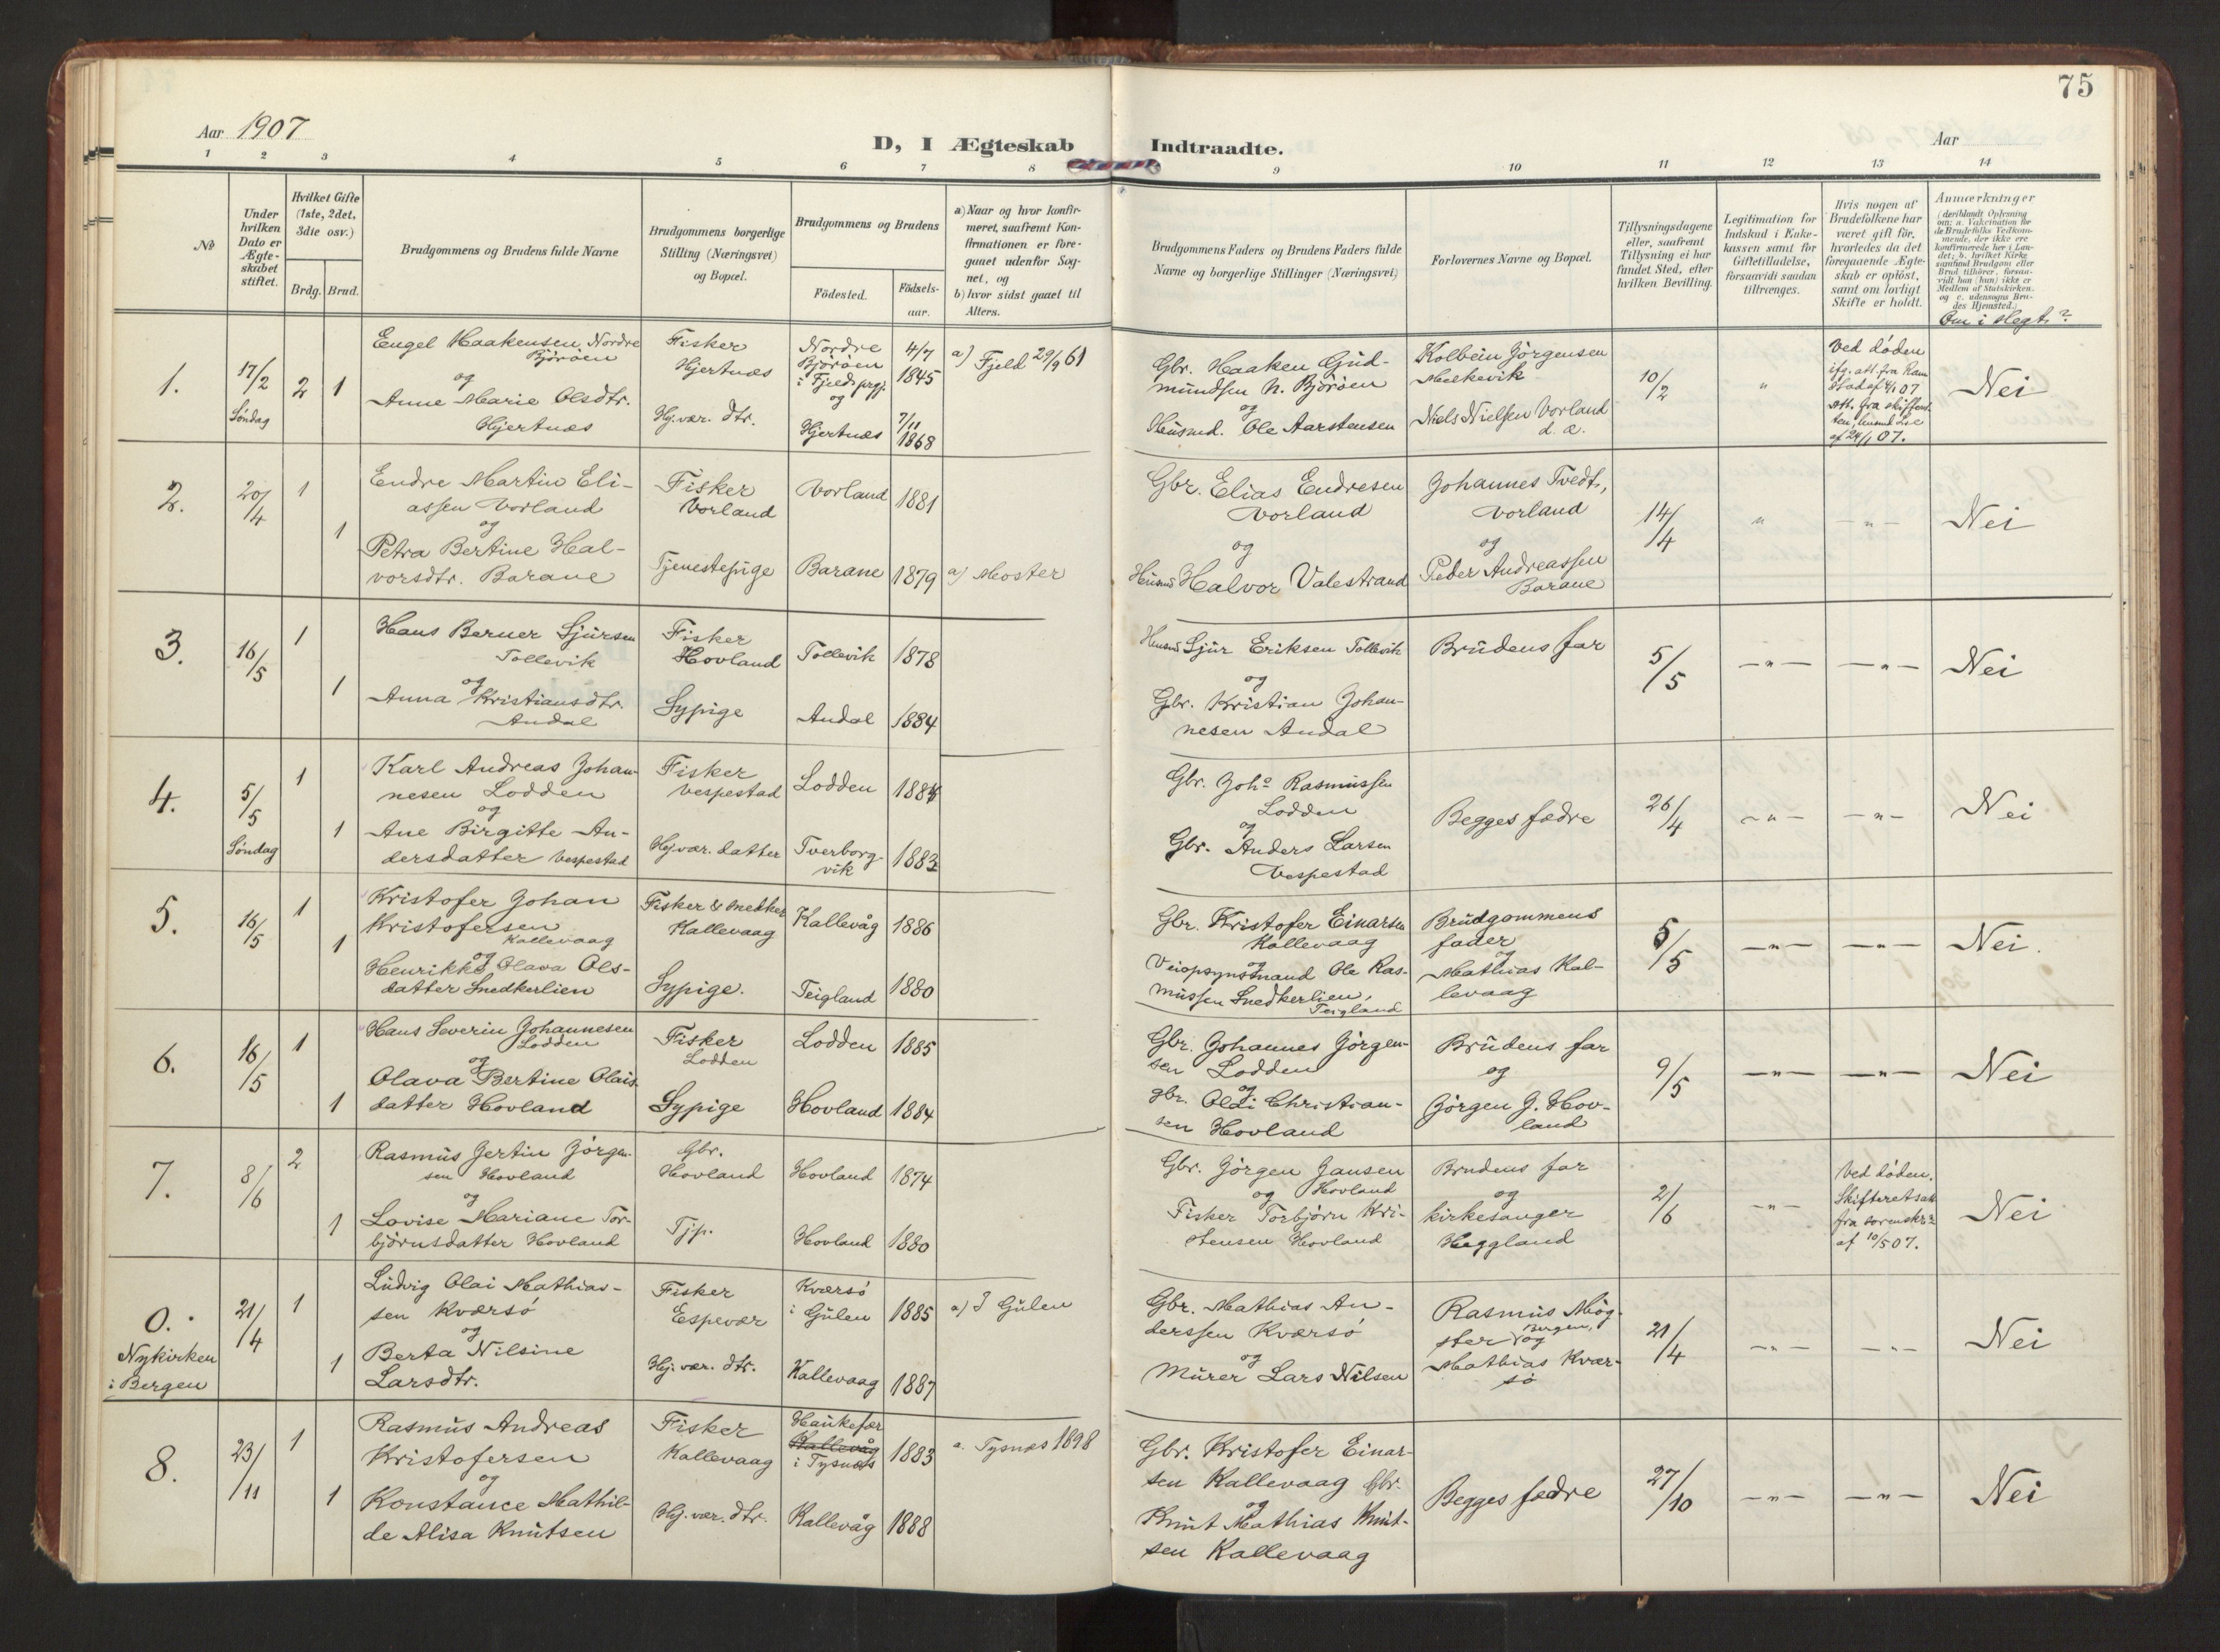 75
Aar 1907
D, I Ægteskab Indtraadte.
Aar
1 2 3 4 5 6 7 8 9 10 11 12 13 14
№
Under hvilken Dato er Ægteskabet stiftet.
Hvilket Gifte (1ste, 2det, 3die osv.)
Brdg. Brud.
Brudgommens og Brudens fulde Navne
Brudgommens borgerlige Stilling (Næringsvei) og Bopæl.
Brudgommens og Brudens
Födested.
Födselsaar.
a) Naar og hvor konfirmeret, saafremt Konfirmationen er foregaaet udenfor Sognet, og
b) hvor sidst gaaet til Alters.
Brudgommens Faders og Brudens Faders fulde Navne og borgerlige Stillinger (Næringsvei)
Forlovernes Navne og Bopæl.
Tillysningsdagene eller, saafremt Tillysning ei har fundet Sted, efter hvilken Bevilling.
Legitimation for Indskud i Enkekassen samt for Giftetilladelse, forsaavidt saadan tiltrænges.
Hvis nogen af Brudefolkene har været gift för, hvorledes da det foregaaende Ægteskab er oplöst, samt om lovligt Skifte er holdt.
Anmærkninger
(deriblandt Oplysning om: a. Vakcination for de Brudefolks Vedkommende, der ikke ere konfirmerede her i Landet; b. hvilket Kirkesamfund Brudgom eller Brud tilhörer, forsaavidt han (hun) ikke er Medlem af Statskirken, og c. udensogns Brudes Hjemsted.)
Om i slegt?
1.
17/2
Søndag
2 1
Engel Haakensen Nordre
Björöen
og
Anne Marie Olsdtr.
Hjertnæs
Fisker
Hjertnæs
Hj. vær. dtr.
Nordre
Björöen
i Fjeld prgj.
og
Hjertnæs
4/7
1845
7/11
1868
a) Fjeld 29/9 61
Gbr. Haaken Gud-
mundsen N. Björöen
og
Husmd. Ole Aarstensen
Kolbein Jörgensen
Melkevik
Niels Nielsen Vorland
d. æ.
10/2
"
Ved døden
ifg. att. fra
af 4/1 07
Att. fra
af 24/1 07.
Nei
2.
20/4
1
1
Endre Martin Eli-
assen Vorland
og
Petra Bertine Hal-
vorsdtr. Barane
Fisker
Vorland
Tjenestepige
Vorland
Barane
1881
1879
a) Moster
Gbr. Elias Endresen
Vorland
og
Husmd Halvor Valestrand
Johannes Tvedt,
Vorland
og
Peder Andreassen
Barane
14/4
"
- " -
Nei
3.
16/5
1
1
Hans Berner Sjursen
Tollevik
og
Anna Kristiansdtr.
Andal
Fisker
Hovland
Sypige
Tollevik
Andal
1878
1884
Husmd Sjur Eriksen Tollevik
og
Gbr. Kristian Johan-
nesen Andal
Brudens far
5/5
- " -
- " -
Nei
4.
5/5
Søndag
1
1
Karl Andreas Johan-
nesen Lodden
og
Ane Birgitte An-
dersdatter Vespestad
Fisker
Vespestad
Hj. vær. datter
Lodden
Tverborg-
vik
1884
1883
Gbr. Johs Rasmussen
Lodden
og
Gbr. Anders Larsen
Vespestad
Begges fædre
26/4
- " -
- " -
Nei
5.
16/5
1
1
Kristofer Johan
Kristofersen
Kallevaag
og
Henrikke Olava Ols-
datter Snedkerlien
Fisker & snedker
Kallevaag
Sypige.
Kallevåg
Teigland
1886
1880
Gbr. Kristofer Einarsen
Kallevaag
og
Veiopsynsmand Ole Ras-
mussen Snedkerlien,
Teigland
Brudgommens
fader
og
Mathias Kal-
levaag
5/5
- " -
- " -
Nei.
6.
16/5
1
1
Hans Severin Johannesen
Lodden
og
Olava Bertine Olais-
datter Hovland
Fisker
Lodden
Sypige
Lodden
Hovland
1885
1884
Gbr. Johannes Jörgen-
sen Lodden
og
Gbr. Olai Christian-
sen Hovland
Brudens far
og
Jörgen J. Hov-
land
9/5
- " -
- " -
Nei
7.
8/6
2
1
Rasmus Gertin Jörgen-
sen Hovland
og
Lovise Mariane Tor-
björnsdatter Hovland
Gbr.
Hovland
Tjp.
Hovland
Hovland
1874
1880
Gbr. Jörgen Jansen
og Hovland
Fisker Torbjörn Kri-
stensen Hovland
Brudens far
og
kirkesanger
Heggland
2/6
- " -
Ved døden.
Skifteretsatt
fra sorenskr.
af 10/5 07.
Nei
0.
Nykirken
i Bergen
21/4
1
1
Ludvig Olai Mathias-
sen Kværsö
og
Berta Nilsine
Larsdtr.
Fisker
Espevær
Hj. vær. dtr.
Kværsö
i Gulen
Kallevaag
1885
1887
a) I Gulen
Gbr. Mathias An-
derssen Kværsö
og
Murer Lars Nilsen
Rasmus Mög-
ster Bergen,
og
Mathias Kvær-
sö
21/4
- " -
- " -
Nei
8.
23/11
1
1
Rasmus Andreas
Kristofersen
og
Konstance Mathil-
de Alisa Knutsen
Fisker
Kallevaag
Hj. vær. dtr.
Haukefær
Kallevåg
i Tysnæs
Kallevåg
1883
1888
a. Tysnæs 1898
Gbr. Kristofer Einar-
sen Kallevaag Gbr.
og
Knut Mathias Knut-
sen Kallevaag
Begges fædre
27/10
- " -
- " -
Nei